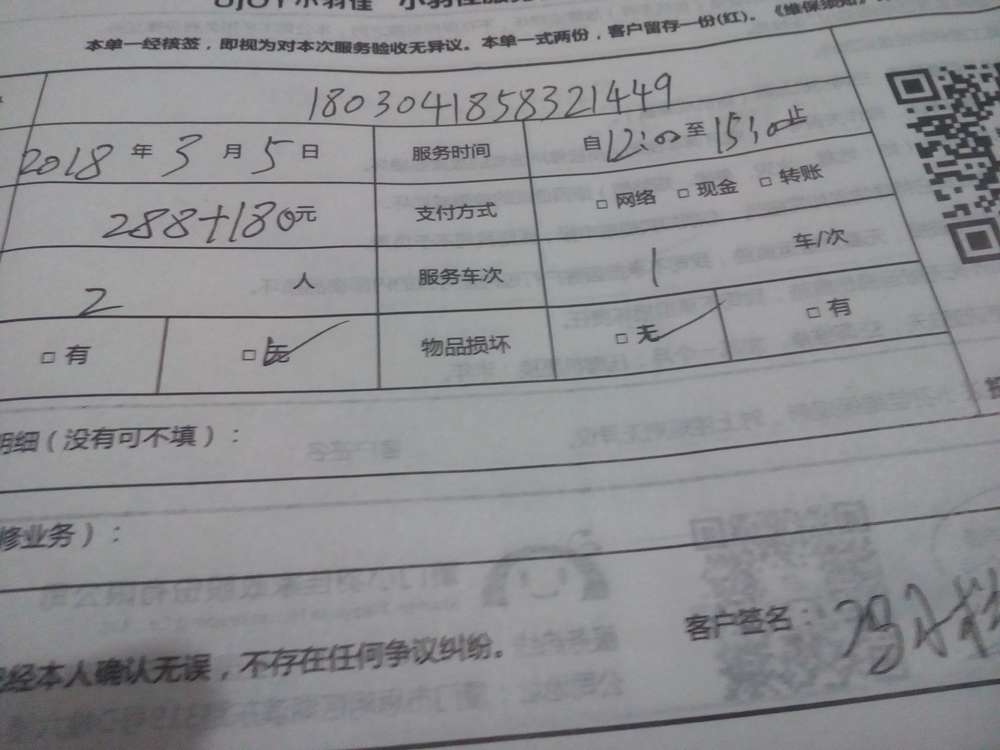 本单一经核签，即视为对本次服务验收无异议。本单一式两份，客户留存一份(红)。《维保须知》
1803041858321449
2018年3月5日 服务时间 自12:00至15:00止
288+180元 支付方式 □网络 □现金 □转账
2人 服务车次 1车/次
□有 □无 物品损坏 □无 □有
明细（没有可不填）：
修业务）：
经本人确认无误，不存在任何争议纠纷。
客户签名：